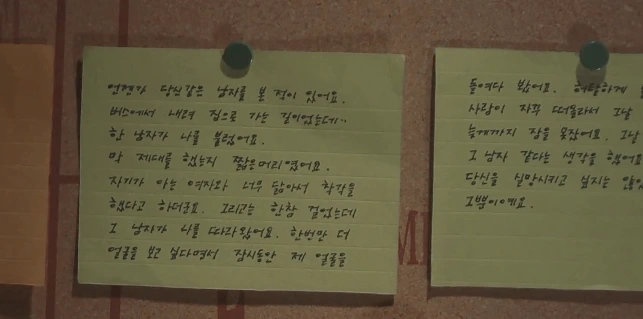 언젠가 당신같은 남자를 본 적이 있어요.
버스에서 내려 집으로 가는 길이었는데..
한 남자가 나를 불렀어요.
막 제대를 했는지 짧은머리였어요.
자기가 아는 여자와 너무 닮아서 착각을
했다고 하더군요. 그리고는 한참 걸었는데
그 남자가 나를 따라왔어요. 한번만 더
얼굴을 보고 싶다면서 잠시동안 제 얼굴을
들여다 봤어요. 허탈하게
사람이 자꾸 떠올라서 그날
늦게까지 잠을 못잤어요. 그날
그 남자 같다는 생각을 했어요
당신을 실망시키고 싶지는 않았
그뿐이에요.